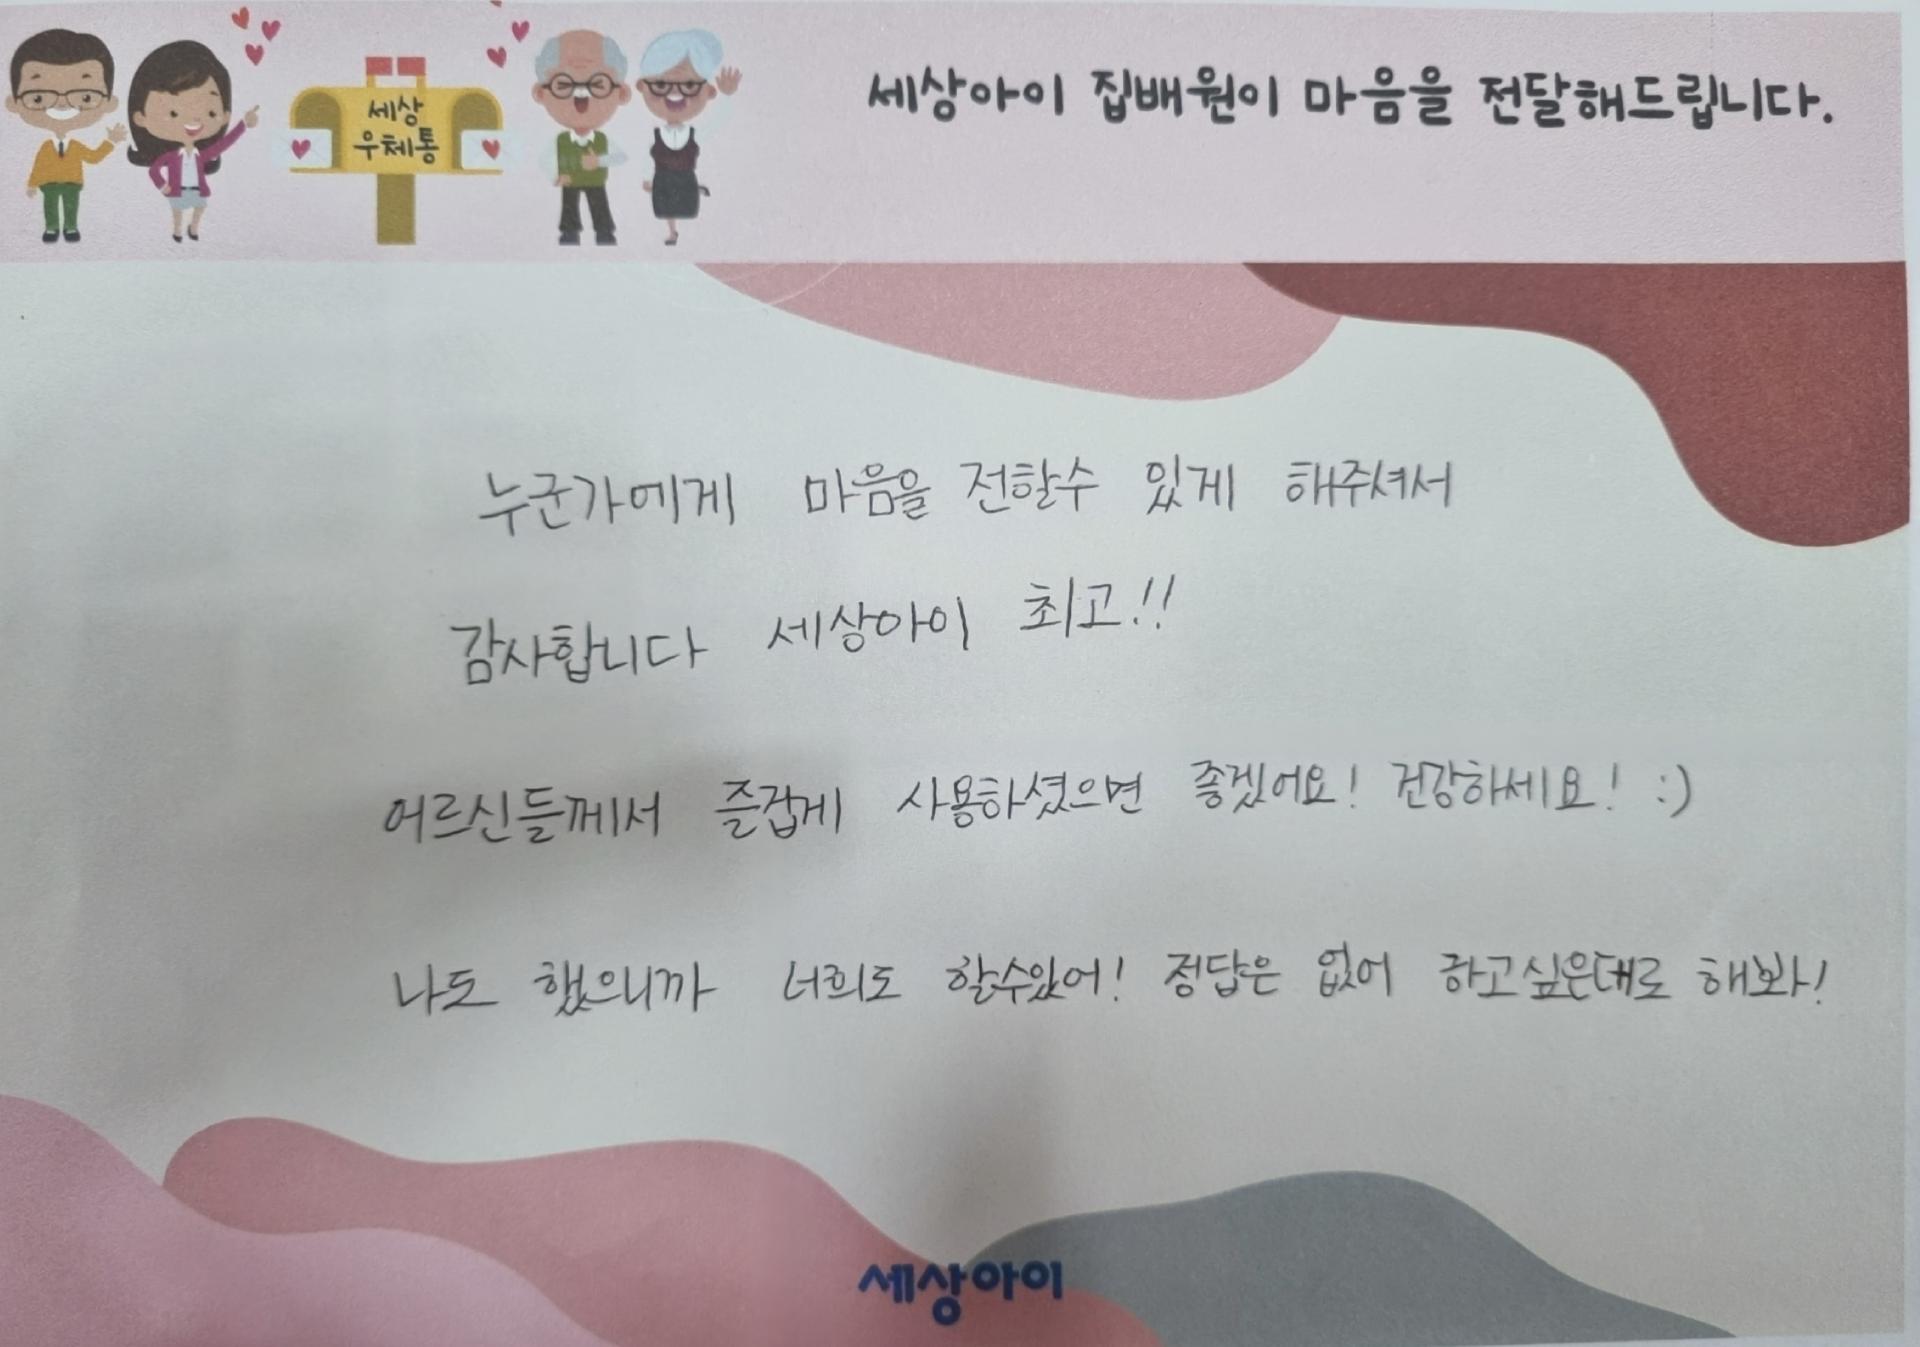 세상
우체통
세상아이 집배원이 마음을 전달해드립니다.
누군가에게 마음을 전할수 있게 해주셔서
감사합니다 세상아이 최고!!
어르신들께서 즐겁게 사용하셨으면 좋겠어요! 건강하세요! :)
나도 했으니까 너희도 할수있어! 정답은 없어 하고싶은대로 해봐!
세상아이